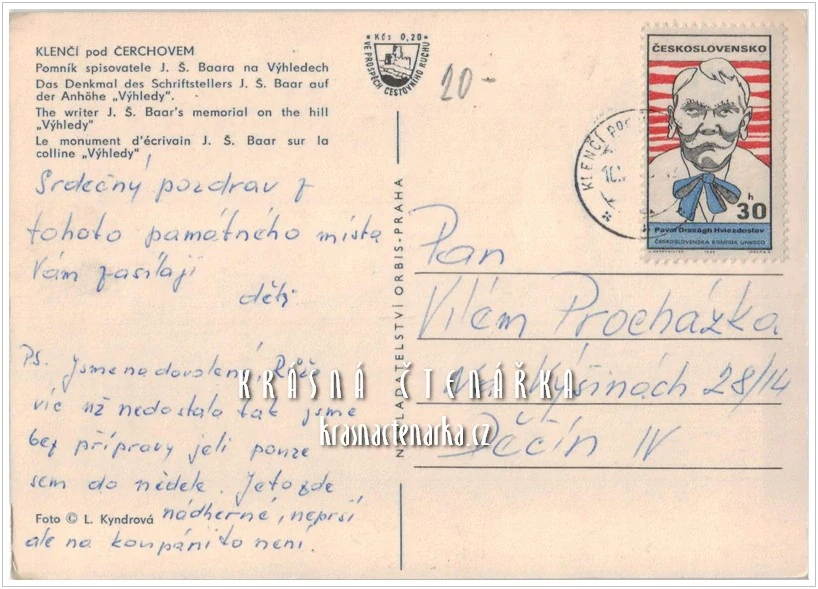 KLENČÍ pod ČERCHOVEM
Pomník spisovatele J. Š. Baara na Výhledech
Das Denkmal des Schriftstellers J. Š. Baar auf
der Anhöhe „Výhledy".
The writer J. Š. Baar's memorial on the hill
„Výhledy"
Le monument d'écrivain J. Š. Baar sur la
colline „Výhledy"
Srdečný pozdrav z
tohoto památného místa
Vám zasílají
děti
Ps. Jsme na dovolené,
víc už nedostala tak jsme
bez přípravy jeli pouze
sem do neděle. Je to zde
nádherné, neprší
ale na koupání to není.
Foto © L. Kyndrová
Kčs 0,20
VE PROSPĚCH CESTOVNÍHO RUCHU
20-
NAKLADATELSTVÍ ORBIS-PRAHA
KLENČÍ POD
ČESKOSLOVENSKO
h
30
Pavol Országh Hviezdoslav
ČESKOSLOVENSKÁ KOMISIA UNESCO
Pan
Vilém Procházka
Na Výšinách 28/14
Děčín IV
KRÁSNÁ ČTENÁŘKA
krasnactenarka.cz